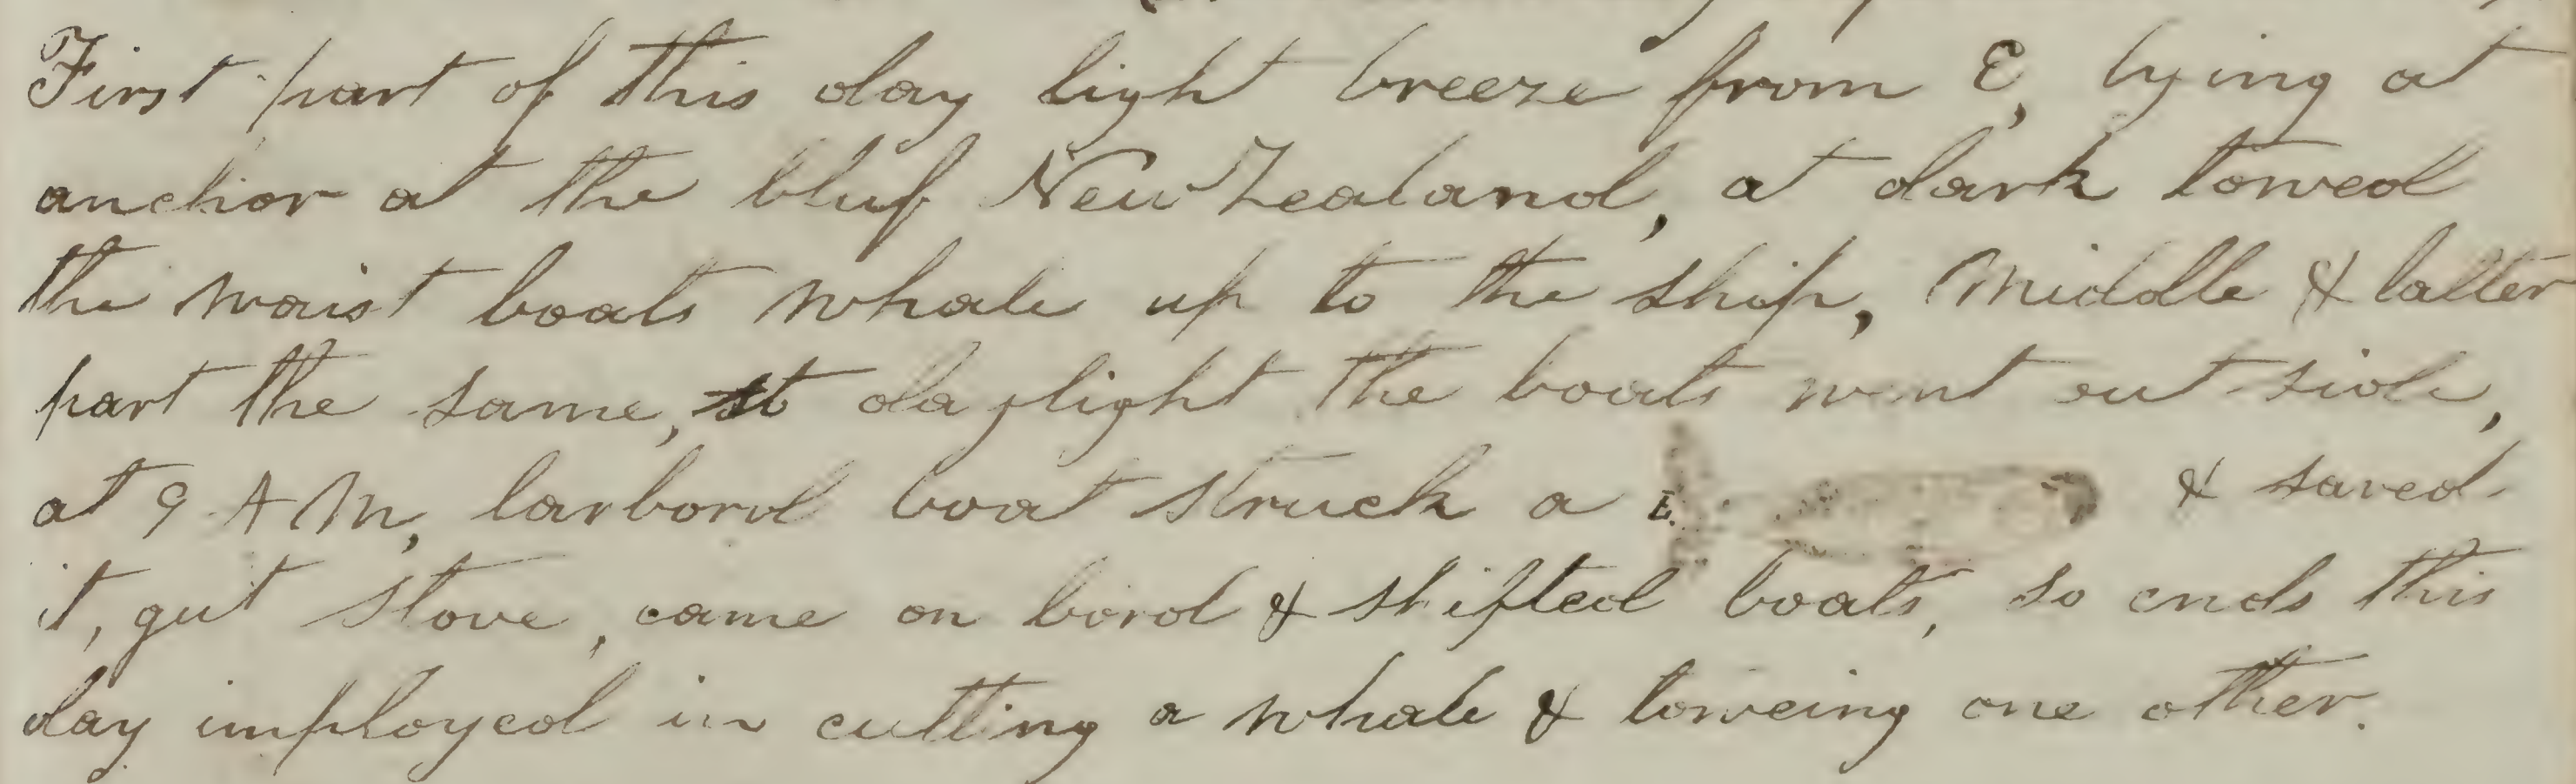 First part of this day light breeze from E, lying at
anchor at the bluf New Zealand, at dark towed
the waist boats whale up to the ship, Middle & latter
part the same, at daylight the boats went out side,
at 9 AM, larbord boat struck a & saved
it, gut stove, came on bord & shifted boats, so ends this
day imployed in cutting a whale & toweing one other.